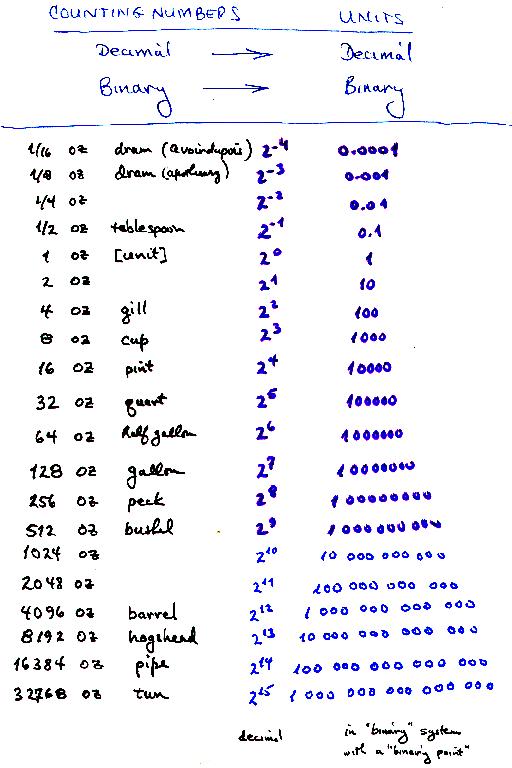 COUNTING NUMBERS UNITS
Decimal → Decimal
Binary → Binary
1/16 oz dram (avoirdupois) 2-4 0.0001
1/8 oz dram (apothecary) 2-3 0.001
1/4 oz 2-2 0.01
1/2 oz tablespoon 2-1 0.1
1 oz [unit] 2^0 1
2 oz 2^1 10
4 oz gill 2^2 100
8 oz cup 2^3 1000
16 oz pint 2^4 10000
32 oz quart 2^5 100000
64 oz half gallon 2^6 1000000
128 oz gallon 2^7 10000000
256 oz peck 2^8 100000000
512 oz bushel 2^9 1000 000 000
1024 oz 2^10 10 000 000 000
2048 oz 2^11 100 000 000 000
4096 oz barrel 2^12 1 000 000 000 000
8192 oz hogshead 2^13 10 000 000 000 000
16384 oz pipe 2^14 100 000 000 000 000
32768 oz tun 2^15 1 000 000 000 000 000
decimal in "binary" system
with a "binary point"